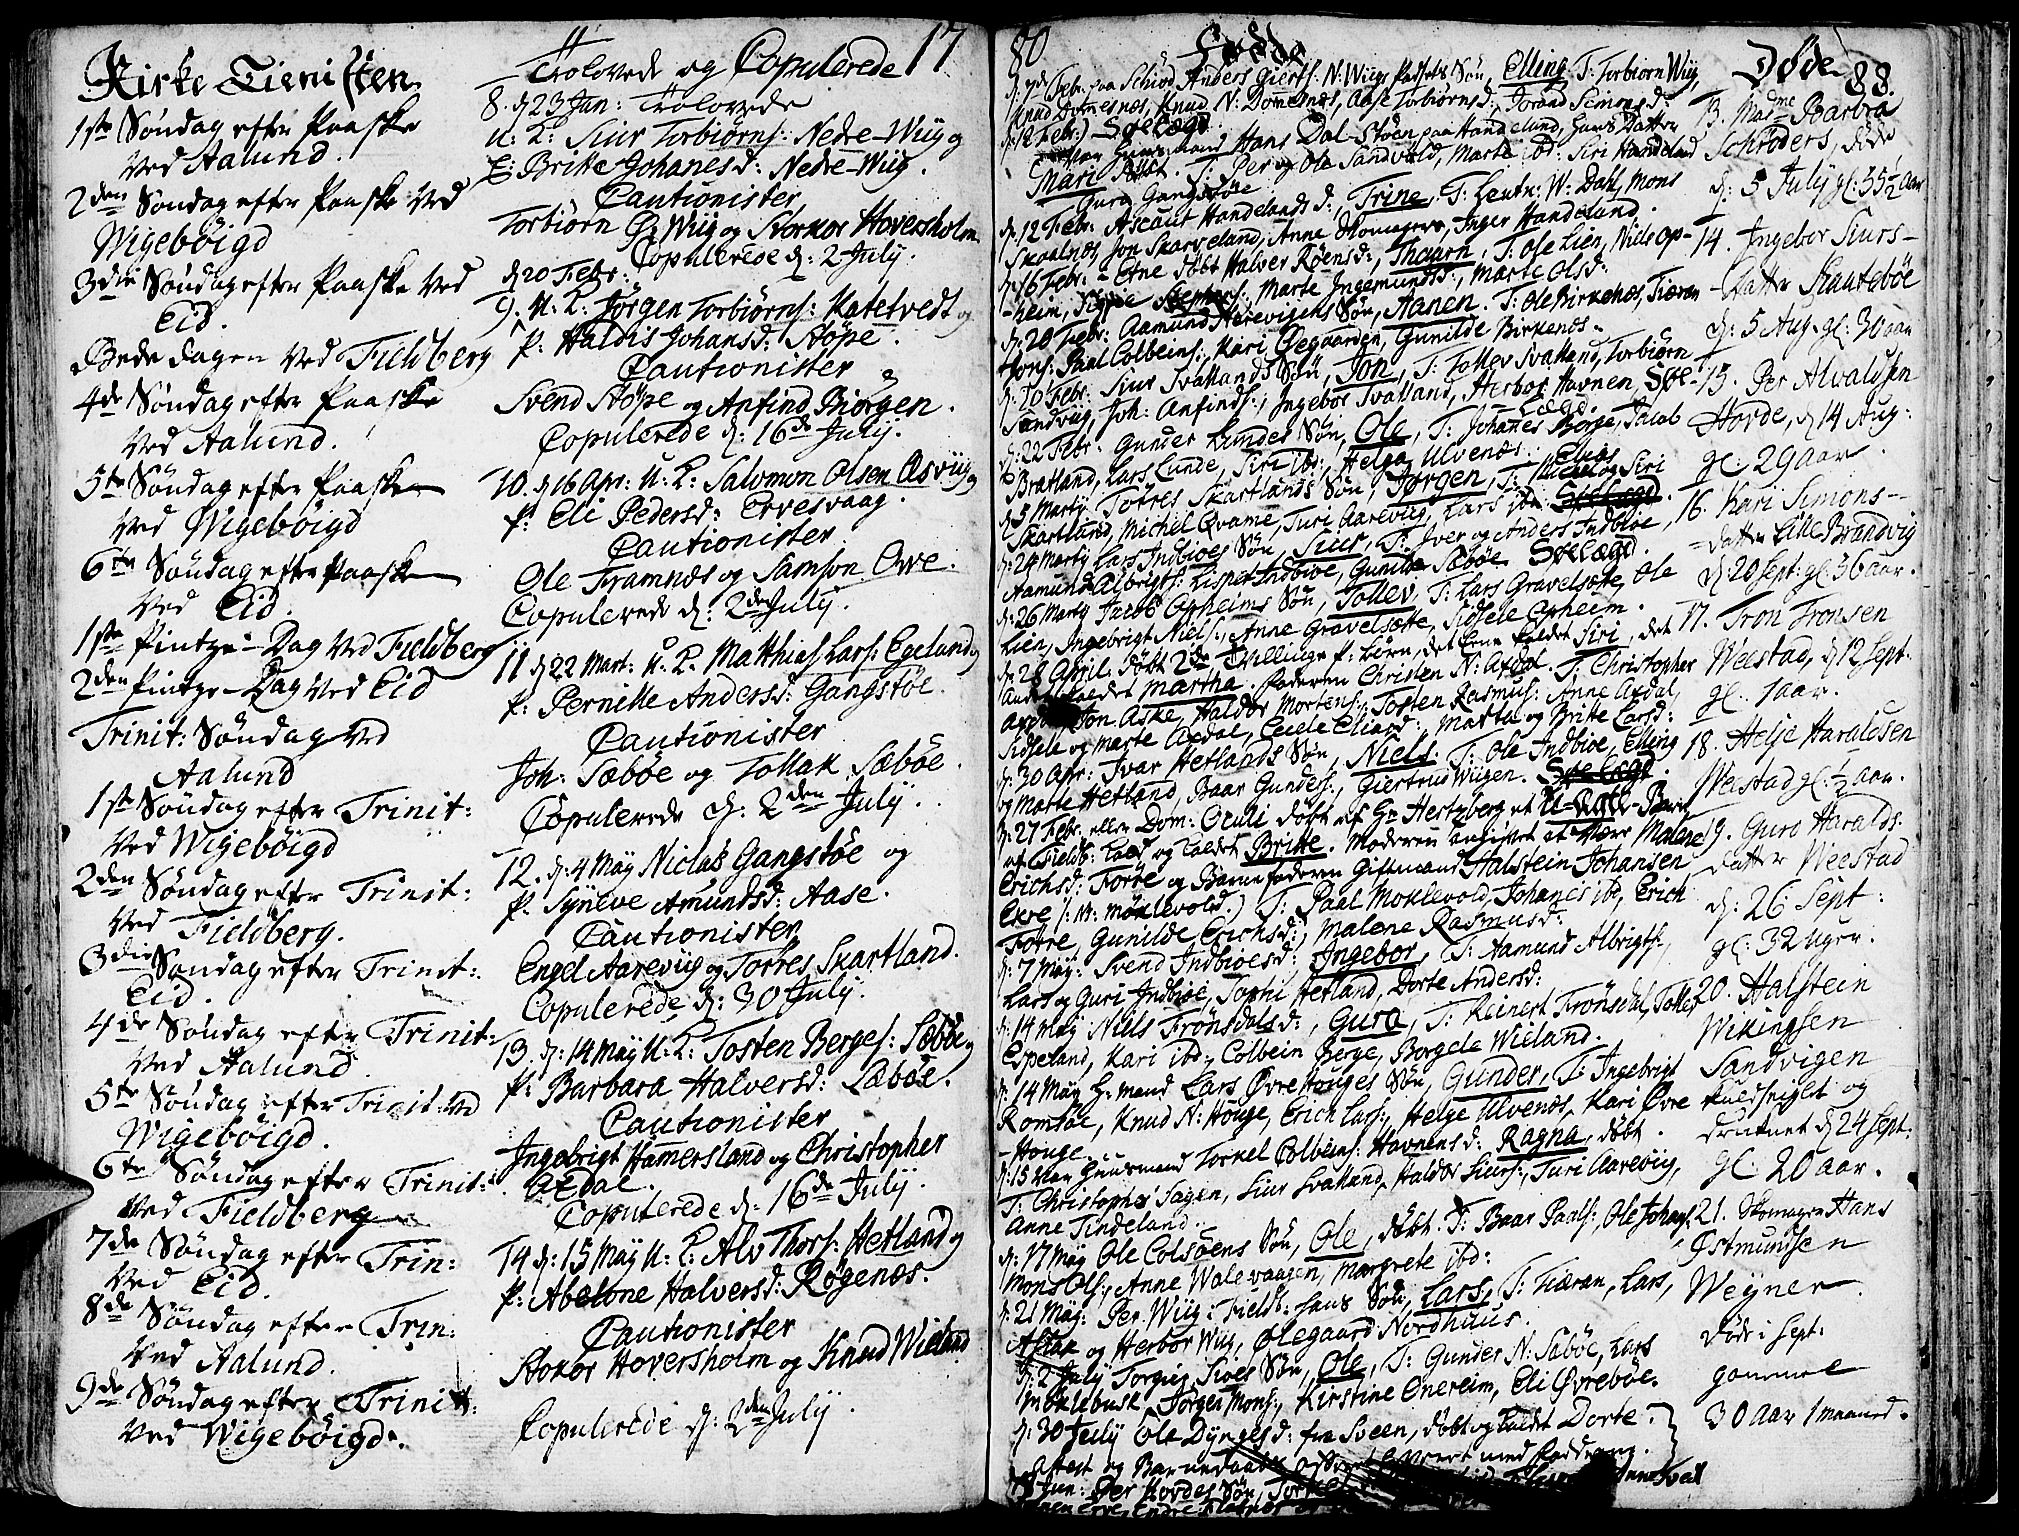 Kirke Tienisten
1ste Søndag efter Paaske
Ved Aalund.
2den Søndag efter Paaske Ved
Wigebøigd
3die Søndag efter Paaske Ved
Eid.
Bede dagen Ved Fieldberg
4de Søndag efter Paaske
Ved Aalund.
5te Søndag efter Paaske
Ved Wigebøigd
6te Søndag efter Paaske
Ved Eid.
1ste Pintze-Dag Ved Fieldberg
2den Pintze-Dag Ved Eid
Trinit: Søndag Ved
Aalund
1ste Søndag efter Trinit:
Ved Wigebøigd
2den Søndag efter Trinit:
Ved Fieldberg.
3die Søndag efter Trinit:
Eid.
4de Søndag efter Trinit:
Ved Aalund.
5te Søndag efter Trinit: Ved
Wigebøigd.
6te Søndag efter Trinit:
Ved Fieldberg
7de Søndag efter Trin:
Ved Eid.
8de Søndag efter Trin:
Ved Aalund.
9de Søndag efter Trinit:
Ved Wigebøigd.
Trolovede og Copulerede 17
8. d 23 Jan: Trolovede
U: K: Siur Torbiørns: Nedre-Wiig og
P: Britte Johanesd: Nedre-Wiig.
Cautionister
Torbiørn Ø: Wiig og Storkor Hoversholm
Copulerede d: 2 July.
d 20 Febr:
9. U: K: Jørgen Torbiørns: Katetvedt og
P: Haldis Johansd: Støpe.
Cautionister
Svend Støpe og Anfind Biørgen.
Copulerede d: 16de July.
10. d 16 Apr: U: K: Salomon Olsen Asviig
P: Eli Pedersd: Ervesvaag.
Cautionister
Ole Framnæs og Samson Ovre.
Copulerede d: 2de July.
11 d 22 Mart: U: K. Matthias Lars: Egeland og
P: Pernille Andersd: Gangstøe.
Cautionister
Joh: Sæbøe og Tollak Sæbøe.
Copulerede d: 2den July.
12. d: 4 May Niclas Gangstøe og
P. Syneve Amundsd: Aase.
Cautionister
Engel Aareviig og Torres Skartland.
Copulerede d: 30 July.
13. d: 14 May U: K: Tosten Berges: Sæbøe
P: Barbara Halversd: Sæbøe.
Cautionister
Ingebrigt Hammersland og Christopher
Axdal.
Copulerede d: 16de July.
14 d: 15 May U: K: Alv Thors: Hetland og
P: Abelone Halversd: Røgenæs.
Cautionister
Stokor Hoversholm og Knud Wieland
Copulerede d: 2den July.
80 Fødde
Elling, T: Torbiørn Wiig,
Knud Dommesnæs, Knud N: Dommesnæs, Aase Torbiørnsd:, Simonsd:
Hans Dal-Støen paa Handeland, hans Datter
Mari døbt. T: Per og Ole Sandvold, Marte ibd: Siri Handeland
Gura Gangstøe
d: 12 Febr: Handelands d:, Trine, T: Leutn: W: Dahl, Mons
Skaalnæs, Jon Skarveland, Anne, Inger Handeland.
d: 16 Febr: Etne døbt Halver Røensd:, T: Ole Lien, Niels Op-
heim, Marte Ingemundsd:, Marte Olsd:
d: 20 Febr: Aamund Hereviigens Søn, Aanen. T: Ole Birkenæs,
Jons: Paal Colbeins:, Kari Øegaarden, Gunilde Birkenæs.
d: 20 Febr: Siur Svallands Søn, Jon, T: Tollev Svalland, Torbiørn
Sandvig, Joh: Anfinds:, Ingebor Svalland, Herbor Havnen,
d: 22 Febr: Gunder Lundes Søn, Ole, T: Johanes Børge, Jacob
Bratland, Lars Lunde, Siri ibd:, Helga Ulvenæs.
d 5 Marty Torres Skartlands Søn, Jørgen, T: og Siri
Skartland, Michel Qvame, Turi Aareviig, Lars ibd:
d: 24 Marty Lars Indbioes Søn, Siur, T: Iver og Anders Indbioe,
Aamund Albrigts: Lisper Indbioe, Gunilde Sæbøe.
d: 26 Marty Jacob Opheims Søn, Tollev, T: Lars Gravelsæte, Ole
Lien, Ingebrigt Niels:, Anne Gravelsætte, Sidsele Opheim.
d: 28 April. Døbt 2de Tvillinge p: børn, det Ene kaldet Siri, det
andet kaldet Martha. Faderen Christen N: Axdal. T: Christopher
Axdal, Jon Aske, Haldor Mortens:, Tosten Rasmus: Anne Axdal,
Sidsele og Marte Axdal, Cecele Eliasd:, Martha og Britte Larsd:
d: 30 Apr: Ivar Hetlands Søn, Niels. T: Ole Indbioe, Elling
og Marte Hetland, Baar Gunders:, Giertrud Wiigen.
d: 27 Febr: eller Dom: Oculi døbt af Hr Hertzberg et U-ægte-Barn
og kaldet Britte. Moderen angivet at være Malene
Erichsd: Førre og Barnefaderen Giftemand Halstein Johansen
Exre (: N: Moklevold) T: Paal Moklevold, Johanes ibd, Erich
Førre, Gunilde Erichsd:, Malene Rasmusd:
d: 7 May: Svend Indbioesd: Ingebor, T: Aamund Albrigts:,
Lars og Guri Indbioe, Sophi Hetland, Dorte Andersd:
d: 14 May Niels Frønsdals d:, Gura, T: Reinert Frønsdal, Tollef
Espeland, Kari ibd:, Colbein Berge, Borgele Wieland.
d: 14 May H: mand Lars Øvre Houges Søn, Gunder, T: Ingebrigt
Romsøe, Knud N: Houge, Erich Lars:, Helge Ulvenæs, Kari Øvre
-Houge.
d: 15 May Huusmand Torkel Colbeins: Havnensd: Ragna, døbt.
T: Christopher Sagen, Siur Svalland, Haldor Siurs:, Turi Aareviig,
Anne Tindeland.
d: 17 May Ole Colsøens Søn, Ole, døbt. T: Baar Paals:, Ole Johans:
Mons Ols:, Anne Walevaagen, Margrete ibd:
d: 21 May: Per Wiig: Fieldb: hans Søn, Lars, T: Lars,
Aslak og Herbor Wiig, Ølegaard Nordhuus.
d: 2 July Torgiels Søn, Ole, T: Gunder N: Sæbøe, Lars
Moklebust, Jørgen Mons:, Kirstine Onereim, Eli Øvrebøe.
d: 30 July Ole fra Sveen, døbt og kaldet Dorte.
Jun: Per Hovdes Søn,
Døde 88.
13. Madme Barbra
Schrøders, døde
d: 5 July gl: 55 1/2 Aar
14. Ingebor Siurs-
Datter Skautebøe
d: 5 Aug. gl: 30 aar
15. Per Alvaldsen
Hovde, d 14 Aug:
gl: 29 aar.
16. Kari Simons-
datter Lille Brandvig
d 20 Sept: gl: 36 aar.
17. Tron Tronsen
Weestad, d 12 Sept.
gl: 1 aar.
18. Helje Haraldsen
Weestad gl: 1/2 aar.
19. Guro Haralds:
datter Weestad
d: 26 Sept:
gl: 32 Uger.
20. Halstein
Wikingsen
Sandvigen
kuldseiglet og
druknet d 24 Sept:
gl: 20 aar.
21. Skomager Hans
Østmundsen
Weyner
døde i Sept:
gammel
30 Aar 1 maaned.